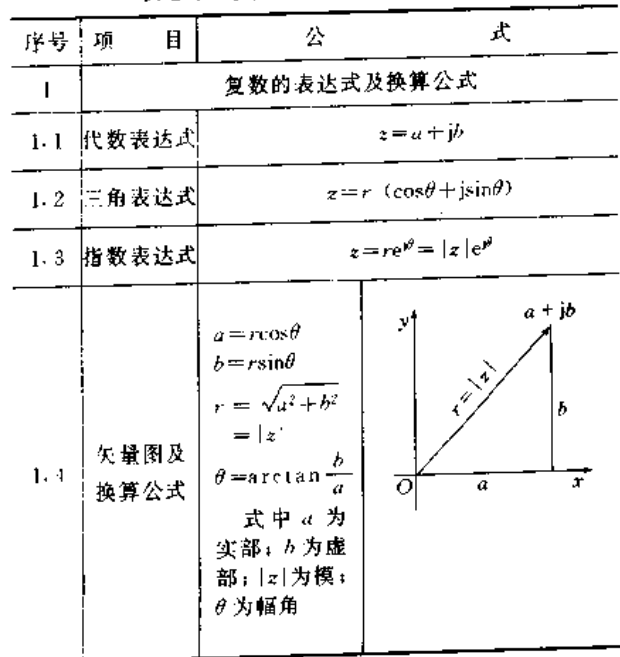 序号 项 目 公 式
1 复数的表达式及换算公式
1.1 代数表达式 z=a+jb
1.2 三角表达式 z=r (cosθ+jsinθ)
1.3 指数表达式 z=re^{jθ}=|z|e^{jθ}
1.4 矢量图及换算公式
a=rcosθ
b=rsinθ
r = √(a²+b²)
=|z|
θ=arctan b/a
式中 a 为
实部；b 为虚
部；|z|为模；
θ 为幅角
y
a + jb
r=|z|
b
O
a
x